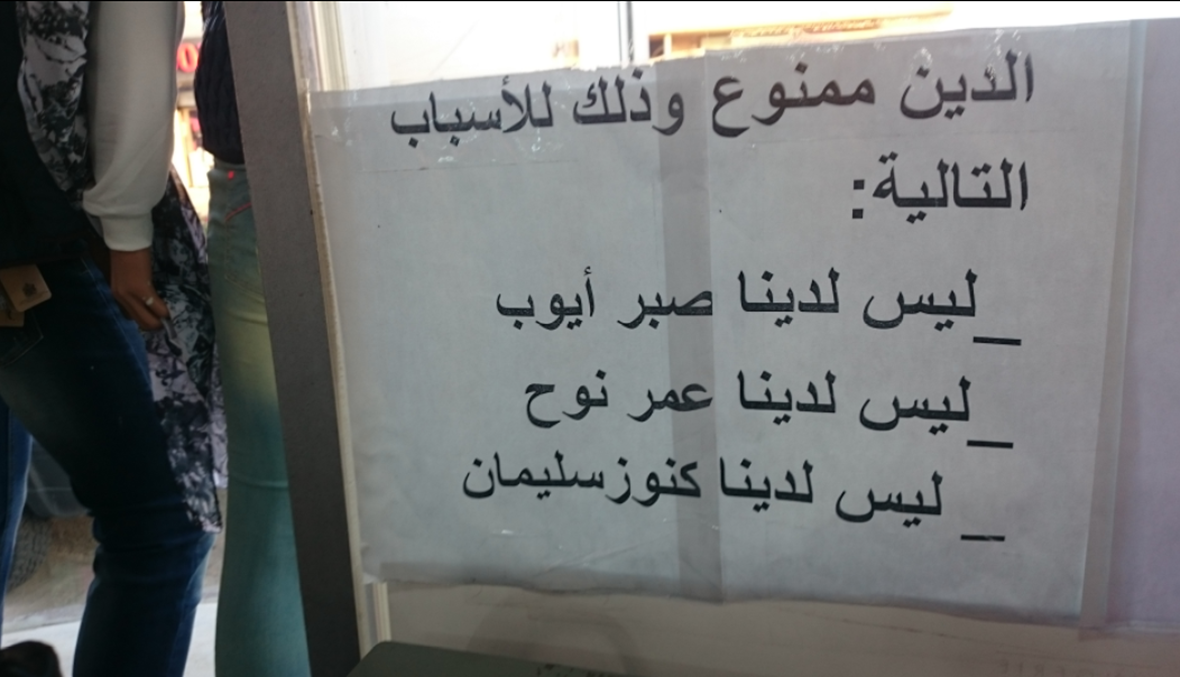 الدين ممنوع وذلك للأسباب
التالية:
_ليس لدينا صبر أيوب
_ليس لدينا عمر نوح
_ ليس لدينا كنوزسليمان